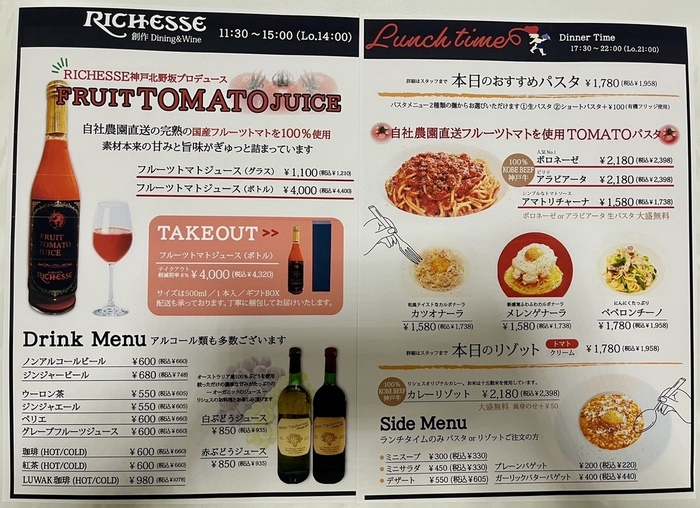 RICHESSE
創作 Dining&Wine
11:30～15:00 (Lo.14:00)
RICHESSE神戸北野坂プロデュース
FRUIT TOMATO JUICE
自社農園直送の完熟の国産フルーツトマトを100%使用
素材本来の甘みと旨味がぎゅっと詰まっています
フルーツトマトジュース (グラス) ¥1,100 (税込¥1,210)
フルーツトマトジュース (ボトル) ¥4,000 (税込¥4,400)
FRUIT
TOMATO
JUICE
RICHESSE
TAKEOUT >>
フルーツトマトジュース (ボトル)
テイクアウト
軽減税率8% ¥4,000 (税込¥4,320)
サイズは500ml／1本入／ギフトBOX
配送も承っております。丁寧に梱包してお届けいたします。
Drink Menu アルコール類も多数ございます
ノンアルコールビール ¥600 (税込¥660)
ジンジャービール ¥680 (税込¥748)
ウーロン茶 ¥550 (税込¥605)
ジンジャエール ¥550 (税込¥605)
ペリエ ¥600 (税込¥660)
グレープフルーツジュース ¥600 (税込¥660)
珈琲 (HOT/COLD) ¥600 (税込¥660)
紅茶 (HOT/COLD) ¥600 (税込¥660)
LUWAK 珈琲 (HOT/COLD) ¥980 (税込¥1078)
オーストラリア産100%ぶどうを使用
絞っただけの濃厚な甘みがたっぷりの
―オーガニックのジュース―
リシェスのお料理とお楽しみ頂けます
白ぶどうジュース
¥850 (税込¥935)
赤ぶどうジュース
¥850 (税込¥935)
Lunch time
Dinner Time
17:30～22:00 (Lo.21:00)
詳細はスタッフまで 本日のおすすめパスタ ¥1,780 (税込¥1,958)
パスタメニュー2種類の麺からお選びいただけます①生パスタ ②ショートパスタ+¥100 (有機フリッジ使用)
自社農園直送フルーツトマトを使用 TOMATOパスタ
100%
KOBE BEEF
神戸牛
人気 No.1
ボロネーゼ ¥2,180 (税込¥2,398)
ピリ辛
アラビアータ ¥2,180 (税込¥2,398)
シンプルなトマトソース
アマトリチャーナ ¥1,580 (税込¥1,738)
ボロネーゼ or アラビアータ 生パスタ 大盛無料
和風テイストなカルボナーラ
カツオナーラ
¥1,580 (税込¥1,738)
新感覚ふわふわカルボナーラ
メレンゲナーラ
¥1,580 (税込¥1,738)
にんにくたっぷり
ペペロンチーノ
¥1,780 (税込¥1,958)
詳細はスタッフまで 本日のリゾット トマト クリーム ¥1,780 (税込¥1,958)
100%
KOBE BEEF
神戸牛
リシェスオリジナルカレー。お米は十五穀米を使用しています。
カレーリゾット ¥2,180 (税込¥2,398)
大盛無料 黄身のせ +¥50
Side Menu
ランチタイムのみ パスタ or リゾットご注文の方
ミニスープ ¥300 (税込¥330)
ミニサラダ ¥450 (税込¥330)
デザート ¥550 (税込¥605)
プレーンバゲット ¥200 (税込¥220)
ガーリックバターバゲット ¥400 (税込¥440)